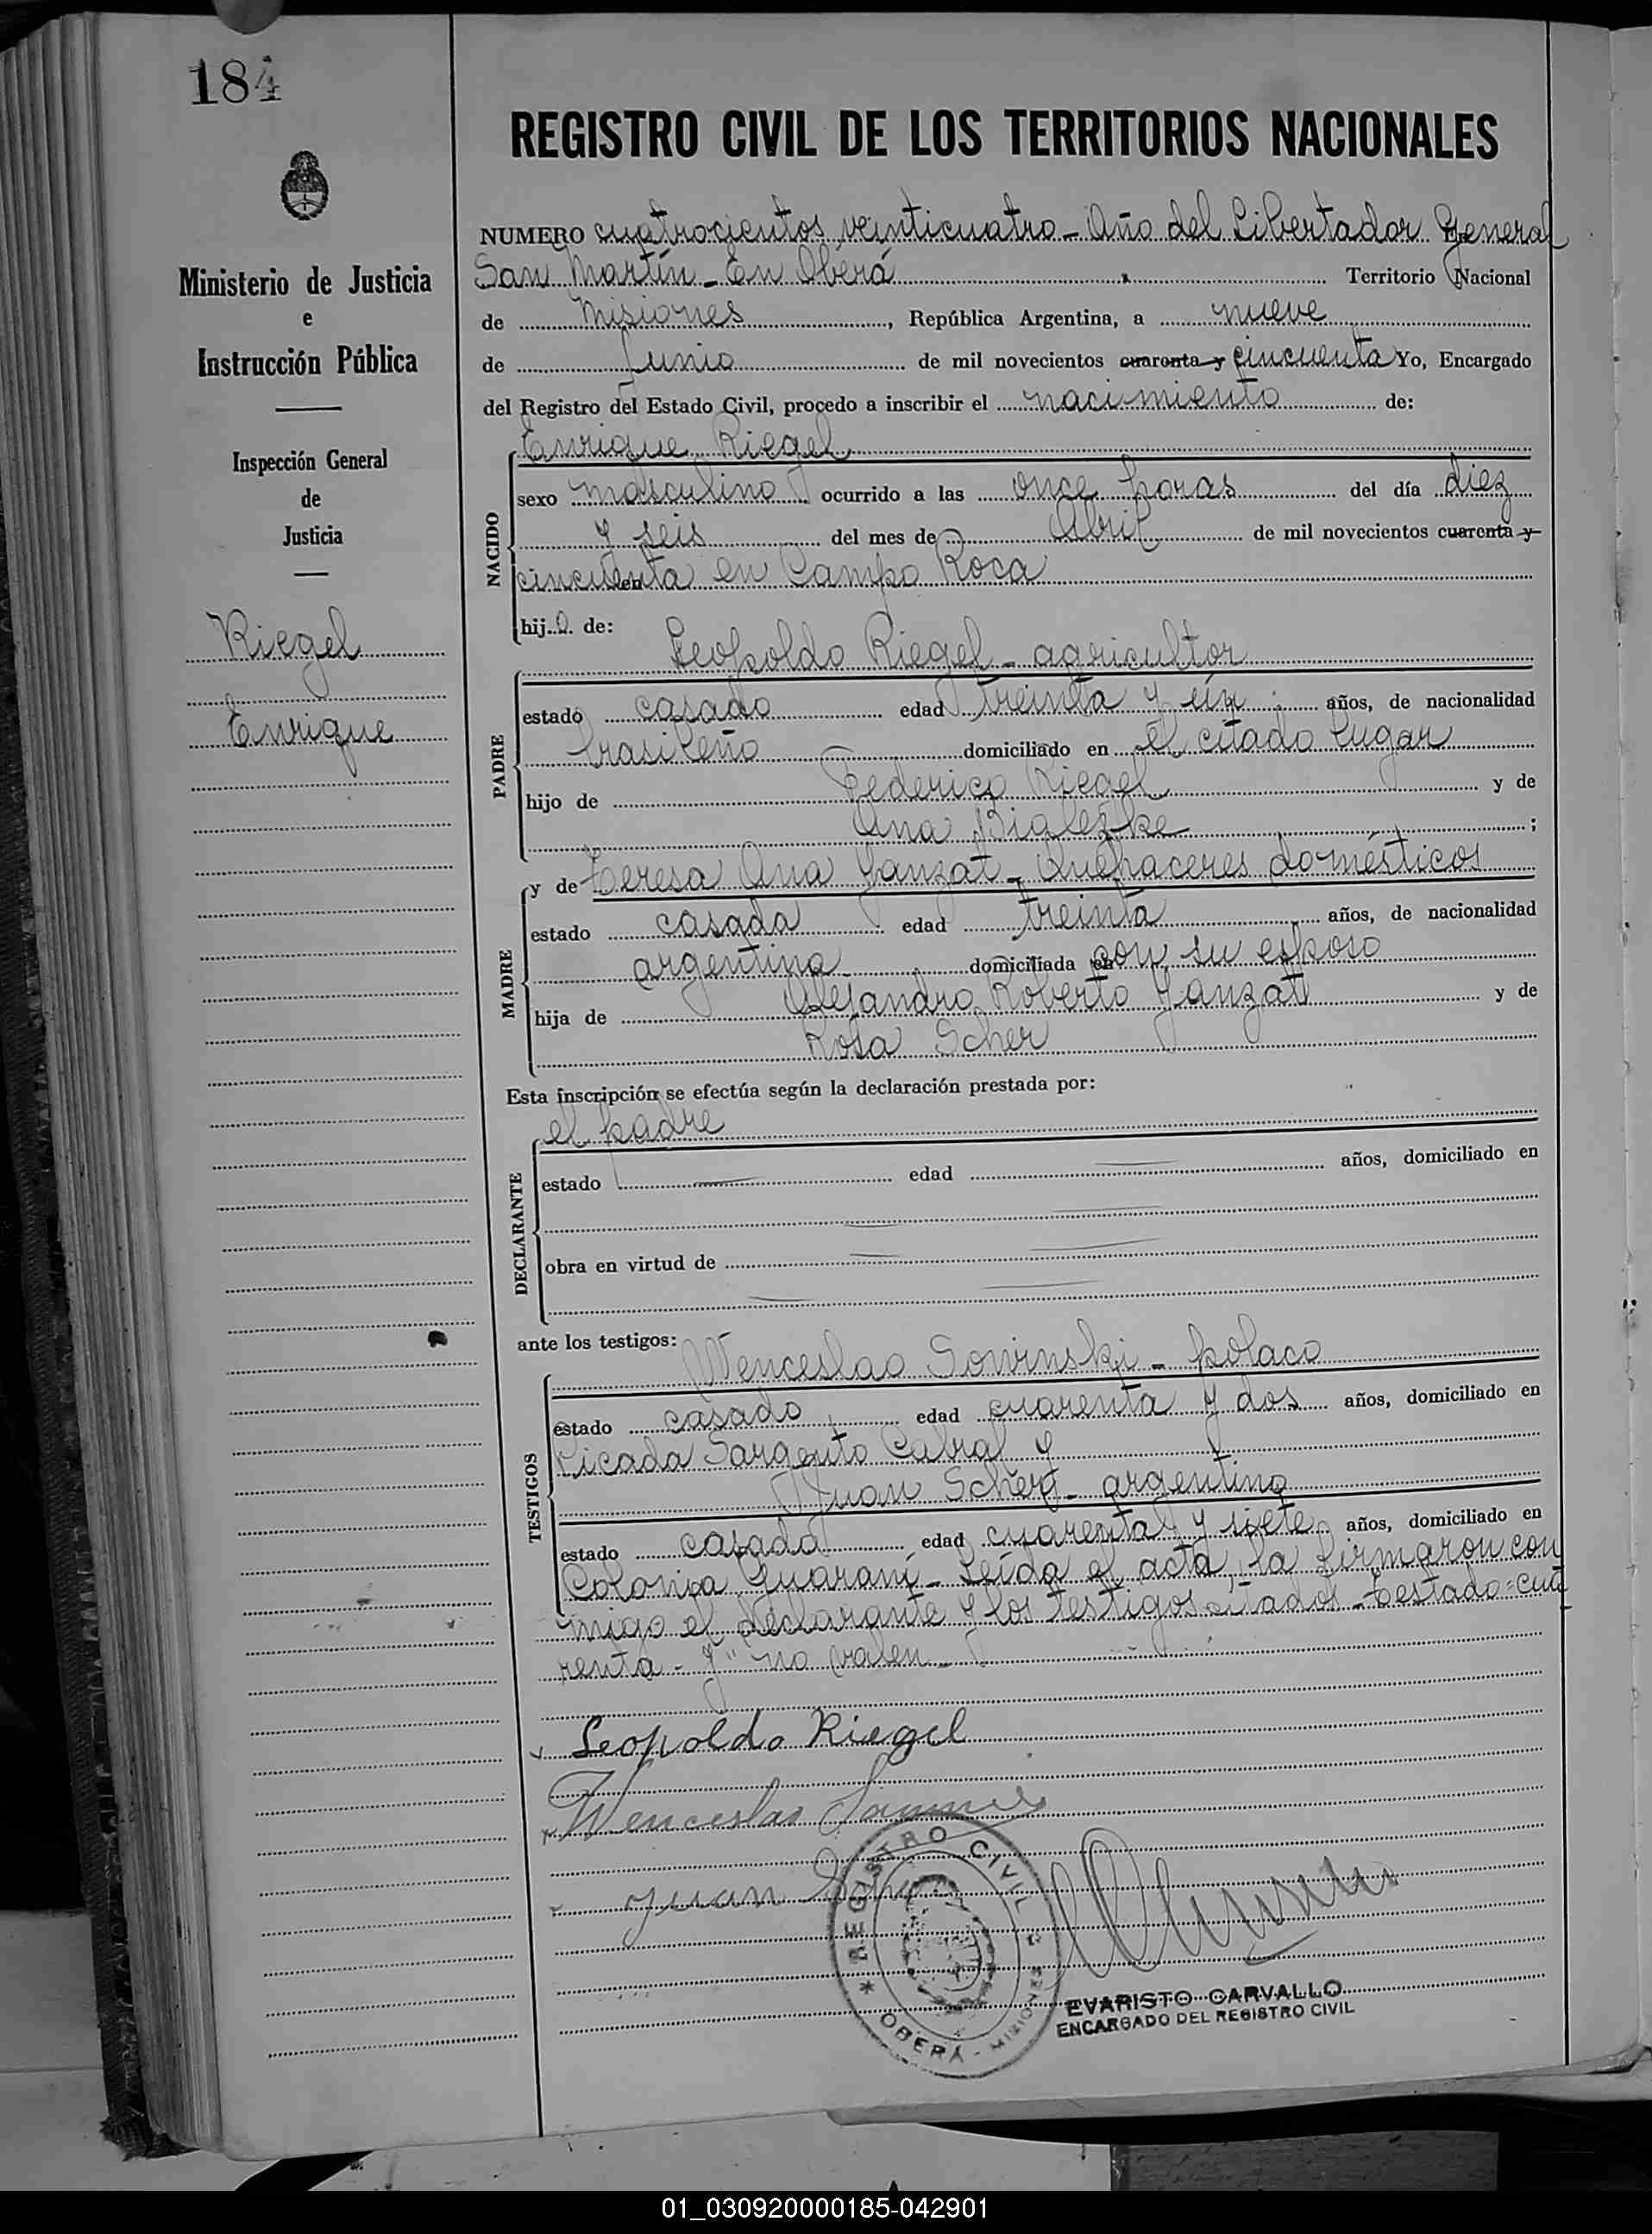 184
REGISTRO CIVIL DE LOS TERRITORIOS NACIONALES
Ministerio de Justicia
e
Instrucción Pública
Inspección General
de
Justicia
Riegel
Enrique
NUMERO cuatrocientos veinticuatro - Año del Libertador General
San Martín - En Oberá Territorio Nacional
de Misiones, República Argentina, a nueve
de Junio de mil novecientos cuarenta y cincuenta Yo, Encargado
del Registro del Estado Civil, procedo a inscribir el nacimiento de:
Enrique Riegel
NACIDO
sexo masculino ocurrido a las once horas del día diez
y seis del mes de Abril de mil novecientos cuarenta y
cincuenta en Campo Roca
hijo de:
Leopoldo Riegel - agricultor
PADRE
estado casado edad treinta y un años, de nacionalidad
brasileño domiciliado en el citado lugar
hijo de Federico Riegel y de
Ana Bialezke ;
y de Teresa Ana Ganzat - Quehaceres domésticos
MADRE
estado casada edad treinta años, de nacionalidad
argentina domiciliada con su esposo
hija de Alejandro Roberto Ganzat y de
Rosa Scher
Esta inscripción se efectúa según la declaración prestada por:
el padre
DECLARANTE
estado edad años, domiciliado en
obra en virtud de
ante los testigos:
Wenceslao Sowinski - polaco
TESTIGOS
estado casado edad cuarenta y dos años, domiciliado en
Picada Sargento Cabral y
Juan Scherf - argentino
estado casado edad cuarenta y siete años, domiciliado en
Colonia Guaraní - Leída el acta, la firmaron con
migo el declarante y los testigos citados - Testado = cua
renta - y" no valen -
Leopoldo Riegel
Wenceslao
Juan
REGISTRO CIVIL
OBERÁ - MISIONES
EVARISTO CARVALLO
ENCARGADO DEL REGISTRO CIVIL
01_030920000185-042901